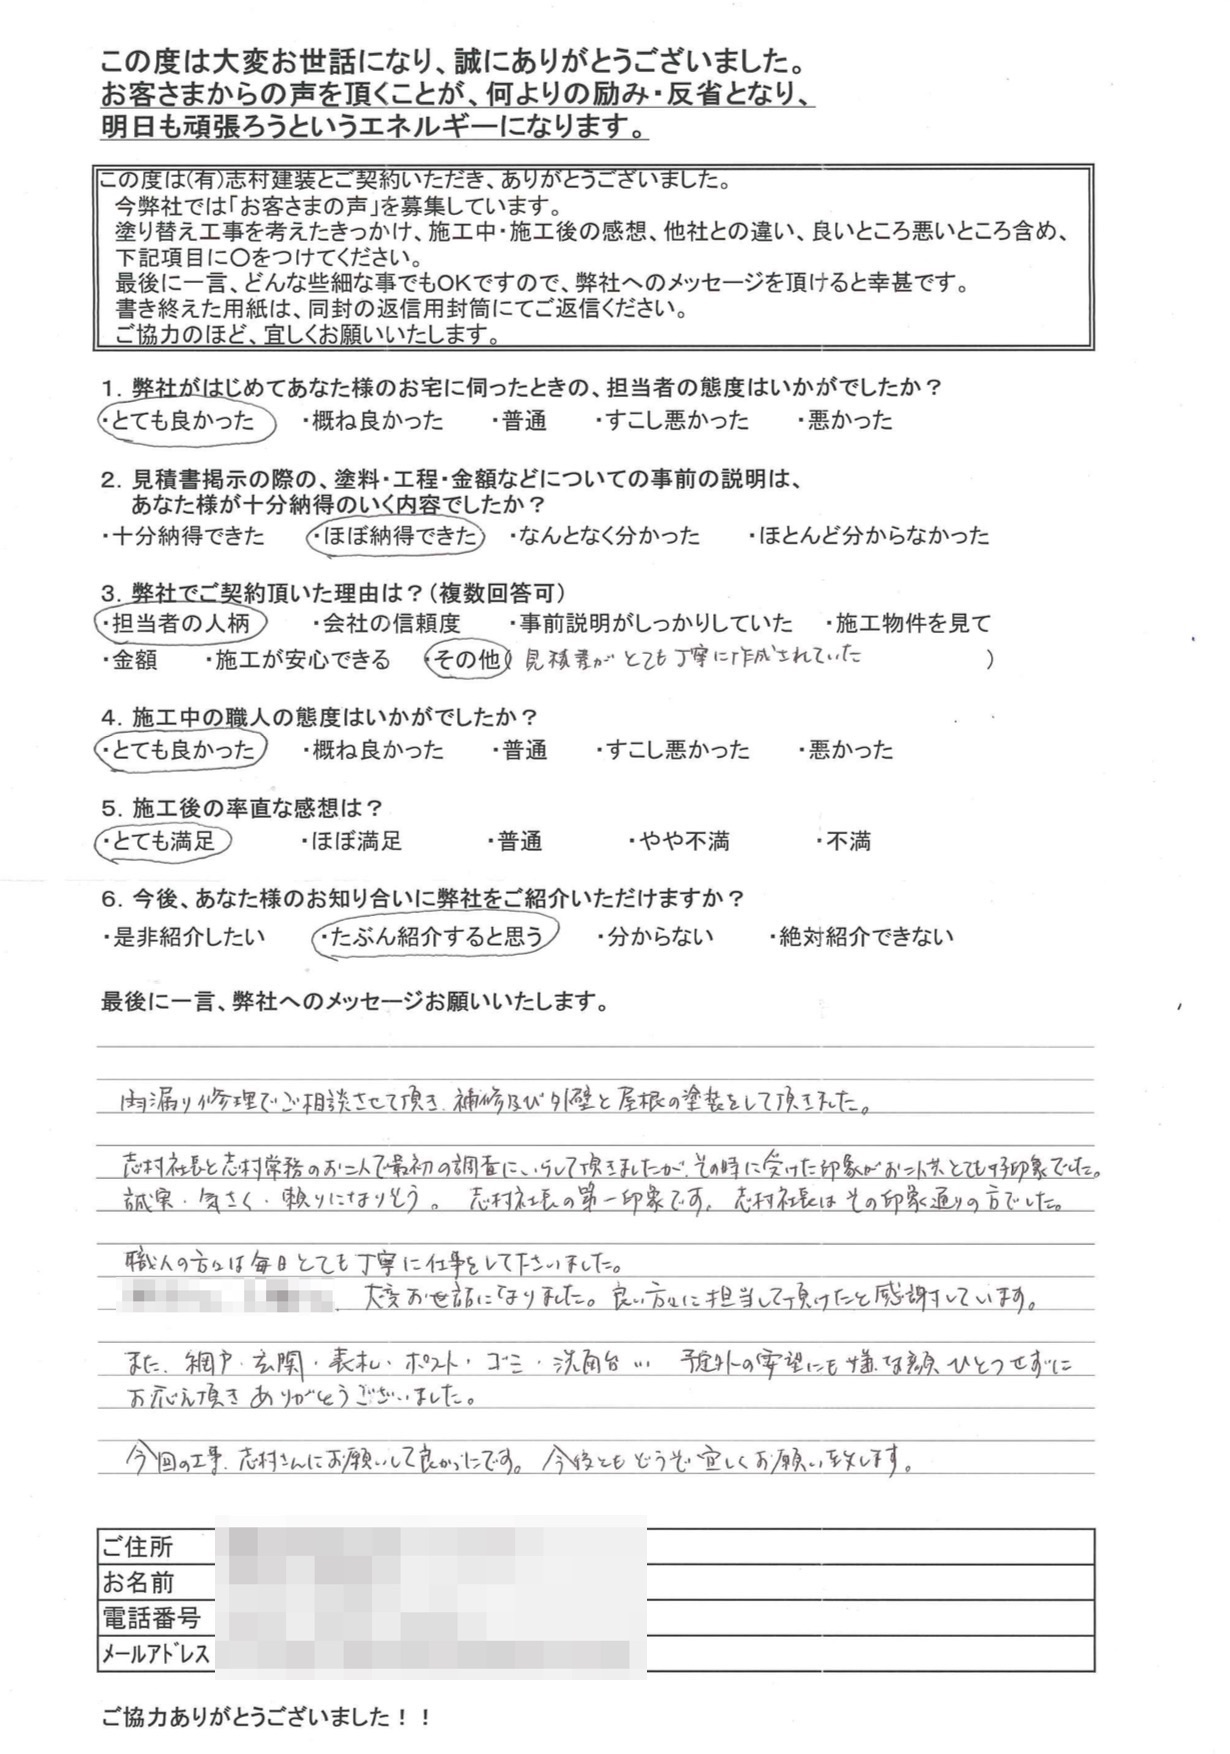 この度は大変お世話になり、誠にありがとうございました。
お客さまからの声を頂くことが、何よりの励み・反省となり、
明日も頑張ろうというエネルギーになります。
この度は(有)志村建装とご契約いただき、ありがとうございました。
今弊社では「お客さまの声」を募集しています。
塗り替え工事を考えたきっかけ、施工中・施工後の感想、他社との違い、良いところ悪いところ含め、
下記項目に〇をつけてください。
最後に一言、どんな些細な事でもOKですので、弊社へのメッセージを頂けると幸甚です。
書き終えた用紙は、同封の返信用封筒にてご返信ください。
ご協力のほど、宜しくお願いいたします。
1. 弊社がはじめてあなた様のお宅に伺ったときの、担当者の態度はいかがでしたか？
・とても良かった ・概ね良かった ・普通 ・すこし悪かった ・悪かった
2. 見積書掲示の際の、塗料・工程・金額などについての事前の説明は、
あなた様が十分納得のいく内容でしたか？
・十分納得できた ・ほぼ納得できた ・なんとなく分かった ・ほとんど分からなかった
3. 弊社でご契約頂いた理由は？（複数回答可）
・担当者の人柄 ・会社の信頼度 ・事前説明がしっかりしていた ・施工物件を見て
・金額 ・施工が安心できる ・その他（見積書がとても丁寧に作成されていた）
4. 施工中の職人の態度はいかがでしたか？
・とても良かった ・概ね良かった ・普通 ・すこし悪かった ・悪かった
5. 施工後の率直な感想は？
・とても満足 ・ほぼ満足 ・普通 ・やや不満 ・不満
6. 今後、あなた様のお知り合いに弊社をご紹介いただけますか？
・是非紹介したい ・たぶん紹介すると思う ・分からない ・絶対紹介できない
最後に一言、弊社へのメッセージお願いいたします。
雨漏り修理でご相談させて頂き、補修及び外壁と屋根の塗装をして頂きました。
志村社長と志村常務のお二人で最初の調査にいらして頂きましたが、その時に受けた印象がお二人共とても好印象でした。
誠実・気さく・頼りになりそう。志村社長の第一印象です。志村社長はその印象通りの方でした。
職人の方々は毎日とても丁寧に仕事をして下さいました。
大変お世話になりました。良い方々に担当して頂けたと感謝しています。
また、網戸・玄関・表札・ポスト・ゴミ・洗面台… 予定外の要望にも嫌な顔ひとつせずに
お応え頂きありがとうございました。
今回の工事、志村さんにお願いして良かったです。今後ともどうぞ宜しくお願い致します。
ご住所
お名前
電話番号
メールアドレス
ご協力ありがとうございました！！